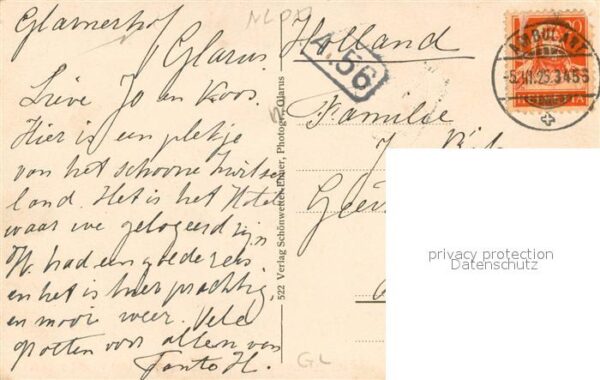 Glarnerhof
Glarus
Lieve Jo en Koos.
Hier is een plekje
van het schoone Zwitser
land. Het is het Hotel
waar we gelogeerd zijn
W. had een goede reis
en het is hier prachtig
en mooi weer. Vele
groeten voor allen van
Tante H.
522 Verlag Schönwetter-Elmer, Photogr., Glarus
Holland
4.56
Familie
AMBULANT
20
HELVETIA
privacy protection
Datenschutz
GL